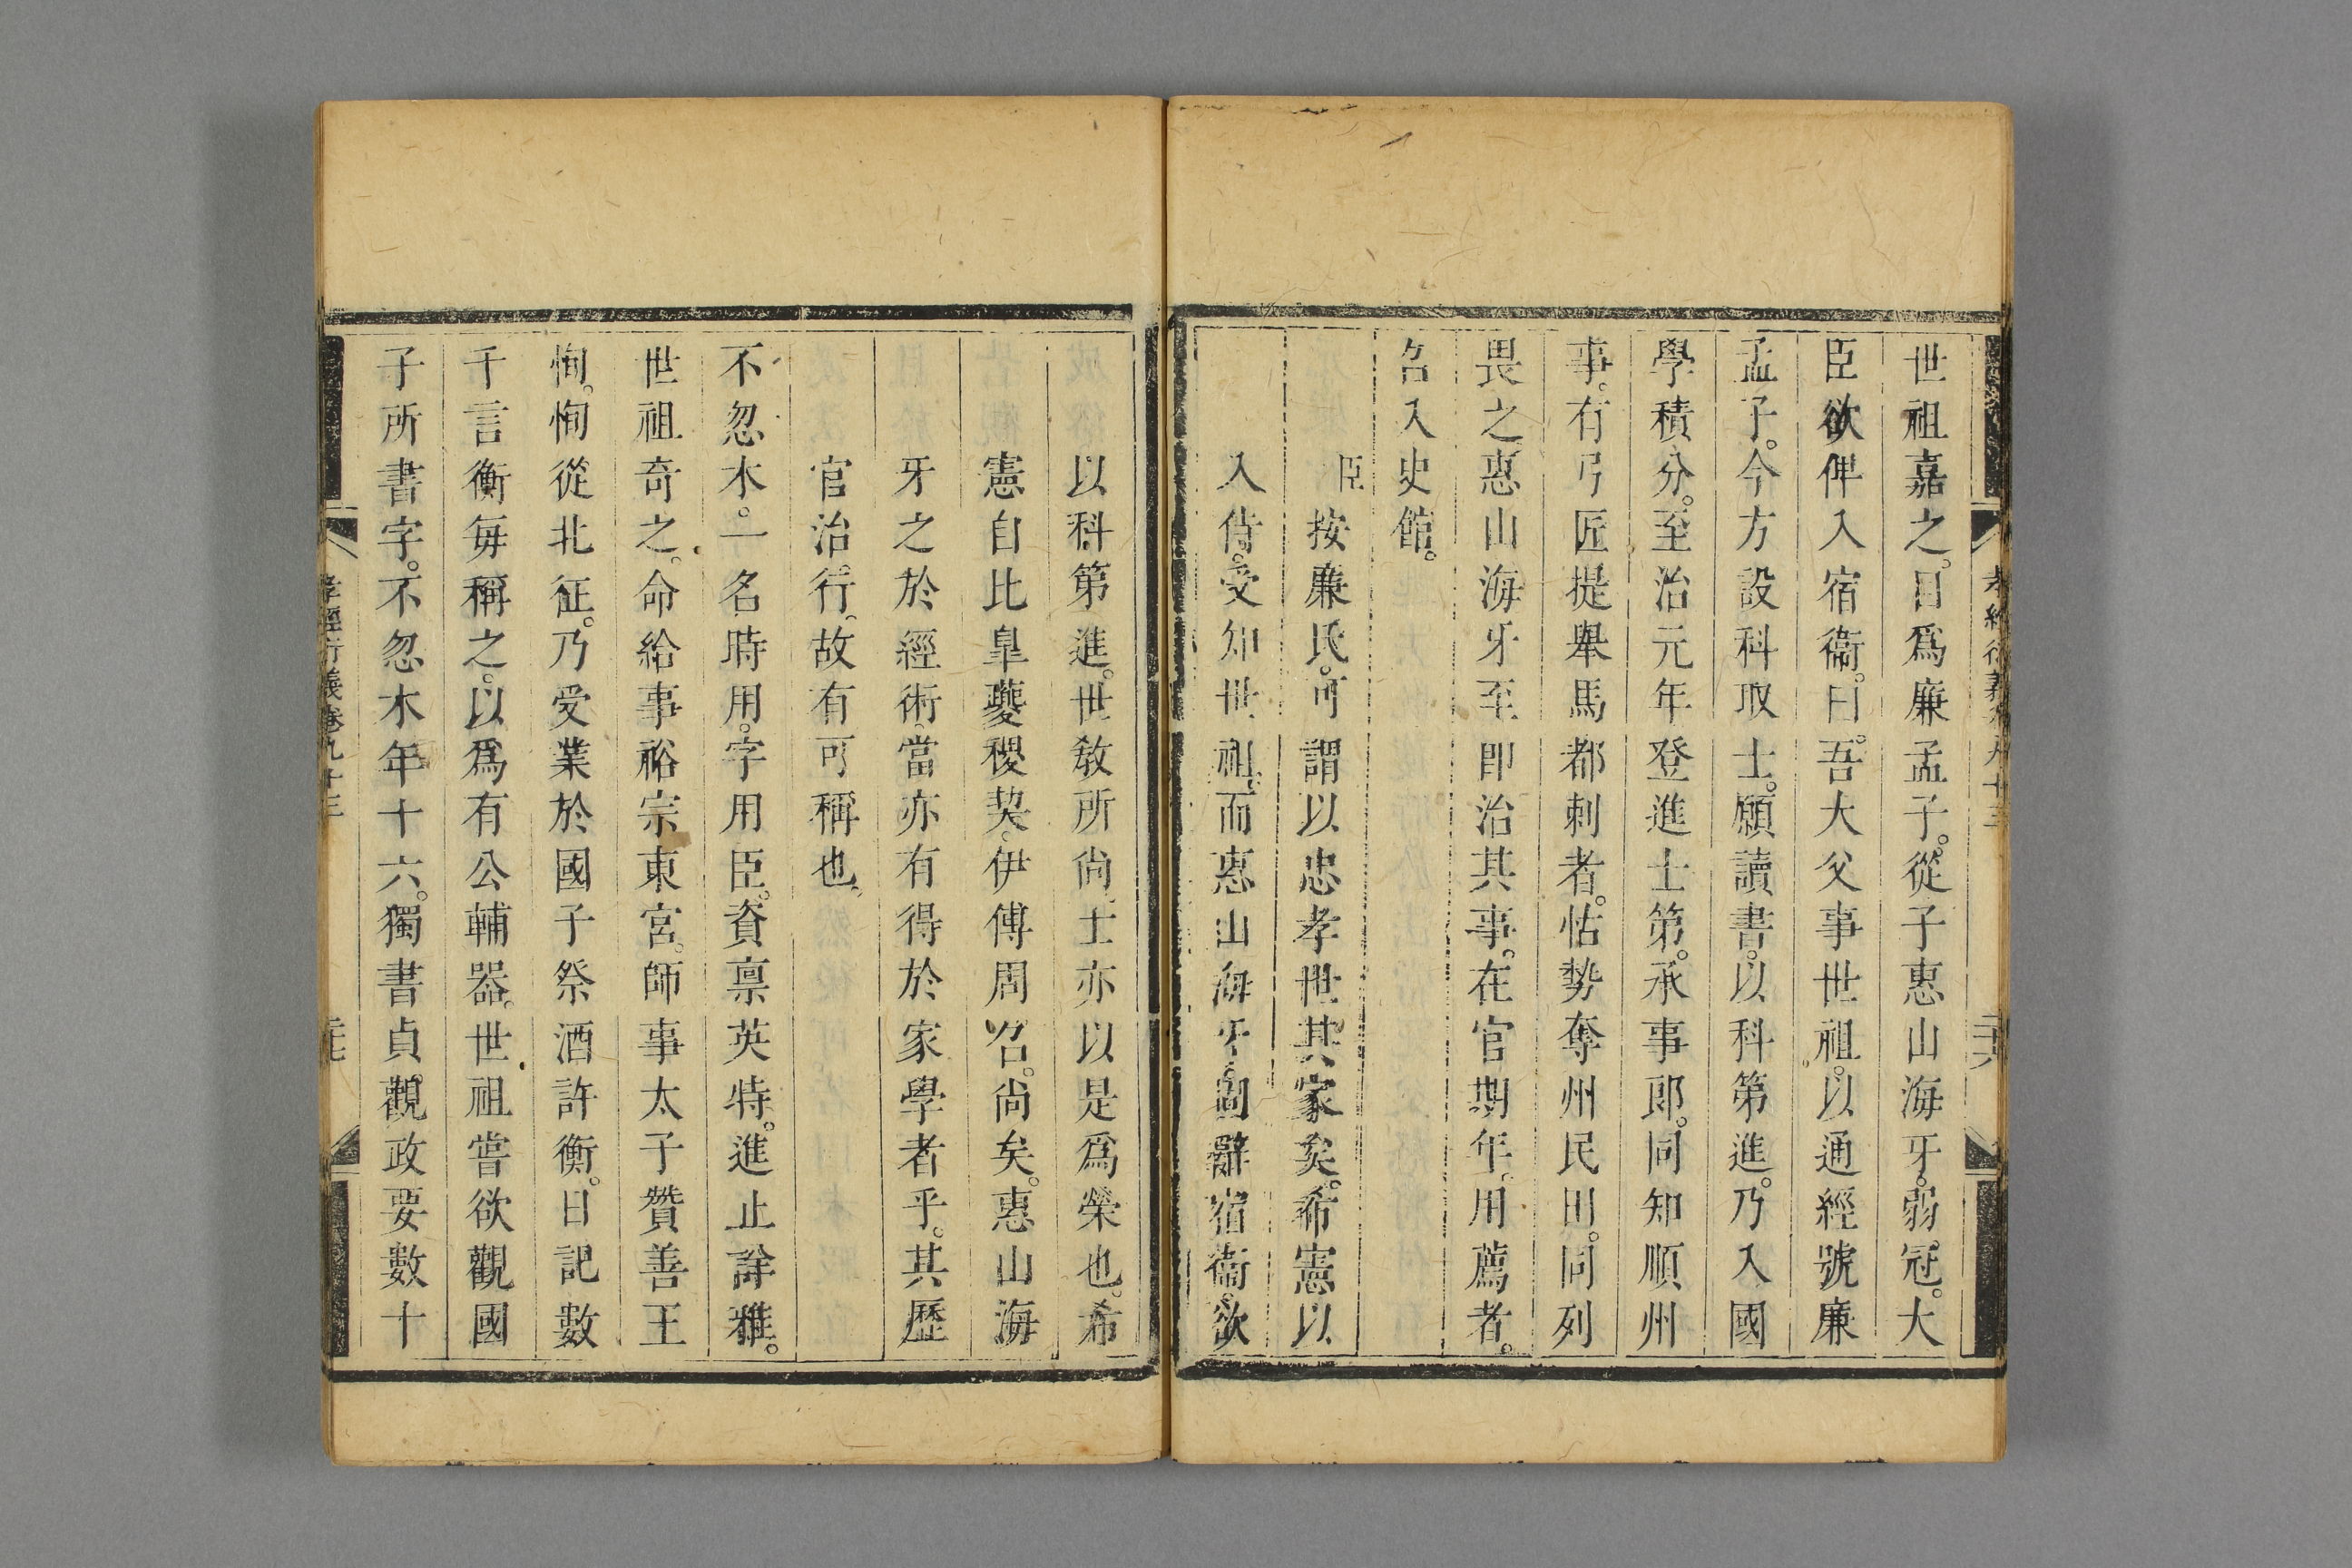 世祖嘉之。目爲廉孟子。從子惠山海牙。弱冠。大
臣欲俾入宿衞。曰。吾大父事世祖。以通經號廉
孟子。今方設科取士。願讀書。以科第進。乃入國
學積分。至治元年登進士第。承事郎。同知順州
事。有弓匠提舉馬都剌者。怙勢奪州民田。同列
畏之惠山海牙至卽治其事。在官期年。用薦者。
名入史館。
臣按廉氏。可謂以忠孝世其家矣。希憲以
入侍。受知世祖。而惠山海牙。固辭宿衞。欲
以科第進。世敎所尙。士亦以是爲榮也。希
憲自比臯夔稷契。伊傅周召。尙矣。惠山海
牙之於經術。當亦有得於家學者乎。其歷
官治行。故有可稱也。
不忽木。一名時用。字用臣。資禀英特。進止詳雅。
世祖奇之。命給事裕宗東宮。師事太子贊善王
恂。恂從北征。乃受業於國子祭酒許衡。日記數
千言衡每稱之。以爲有公輔器。世祖嘗欲觀國
子所書字。不忽木年十六。獨書貞觀政要數十
孝經衍義卷九十三